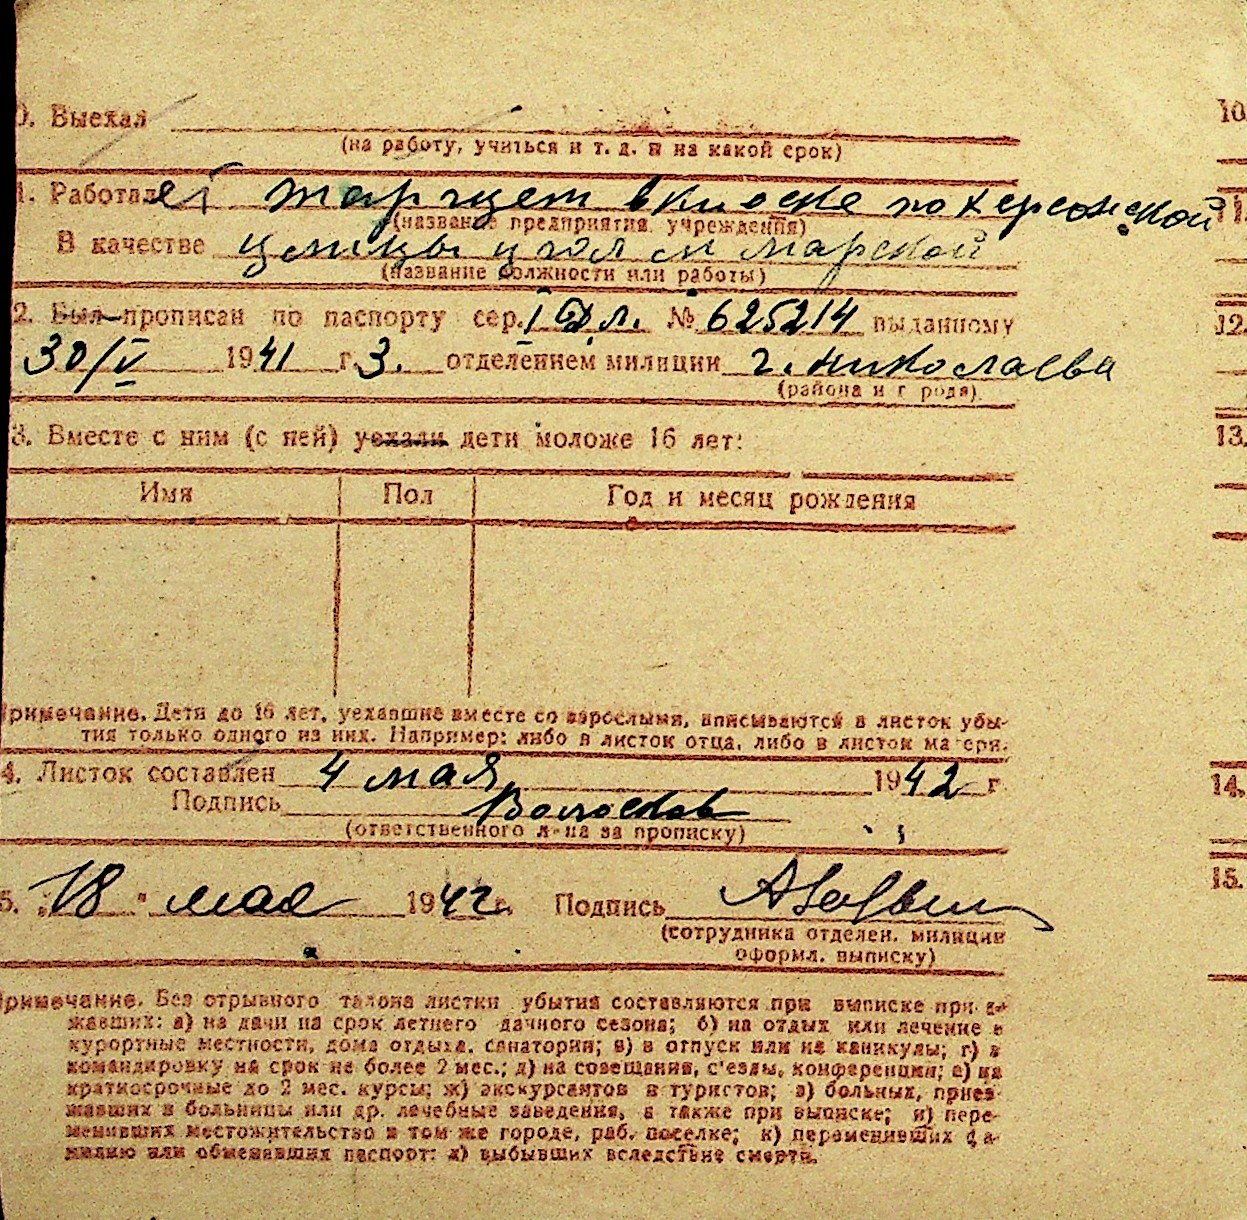 0. Выехал
(на работу, учиться и т. д. и на какой срок)
1. Работает торгует в киоске по херсонской
(название предприятия, учреждения)
В качестве улицы угол м марской
(название должности или работы)
2. Был прописан по паспорту сер. № 625214 выданному
30/V 1941 г. 3. отделением милиции г. николаева
(района и г рода)
3. Вместе с ним (с ней) уехали дети моложе 16 лет:
Имя Пол Год и месяц рождения
Примечание. Дети до 16 лет, уехавшие вместе со взрослыми, вписываются в листок убы-
тия только одного из них. Например: либо в листок отца, либо в листок матери.
4. Листок составлен 4 мая 1942 г.
Подпись
(ответственного л-ца за прописку)
5. "18" мая 1942 г. Подпись
(сотрудника отделен. милиции
оформл. выписку)
Примечание. Без отрывного талона листки убытия составляются при выписке приез-
жавших: а) на дачи на срок летнего дачного сезона; б) на отдых или лечение в
курортные местности, дома отдыха, санатории; в) в отпуск или на каникулы; г) в
командировку на срок не более 2 мес.; д) на совещания, с'езды, конференции; е) на
краткосрочные до 2 мес. курсы; ж) экскурсантов и туристов; з) больных, приез-
жавших в больницы или др. лечебные заведения, а также при выписке; и) пере-
менивших местожительство в том же городе, раб. поселке; к) переменивших фа-
милию или обменявших паспорт: л) выбывших вследствие смерти.
10.
11.
12.
13.
14.
15.